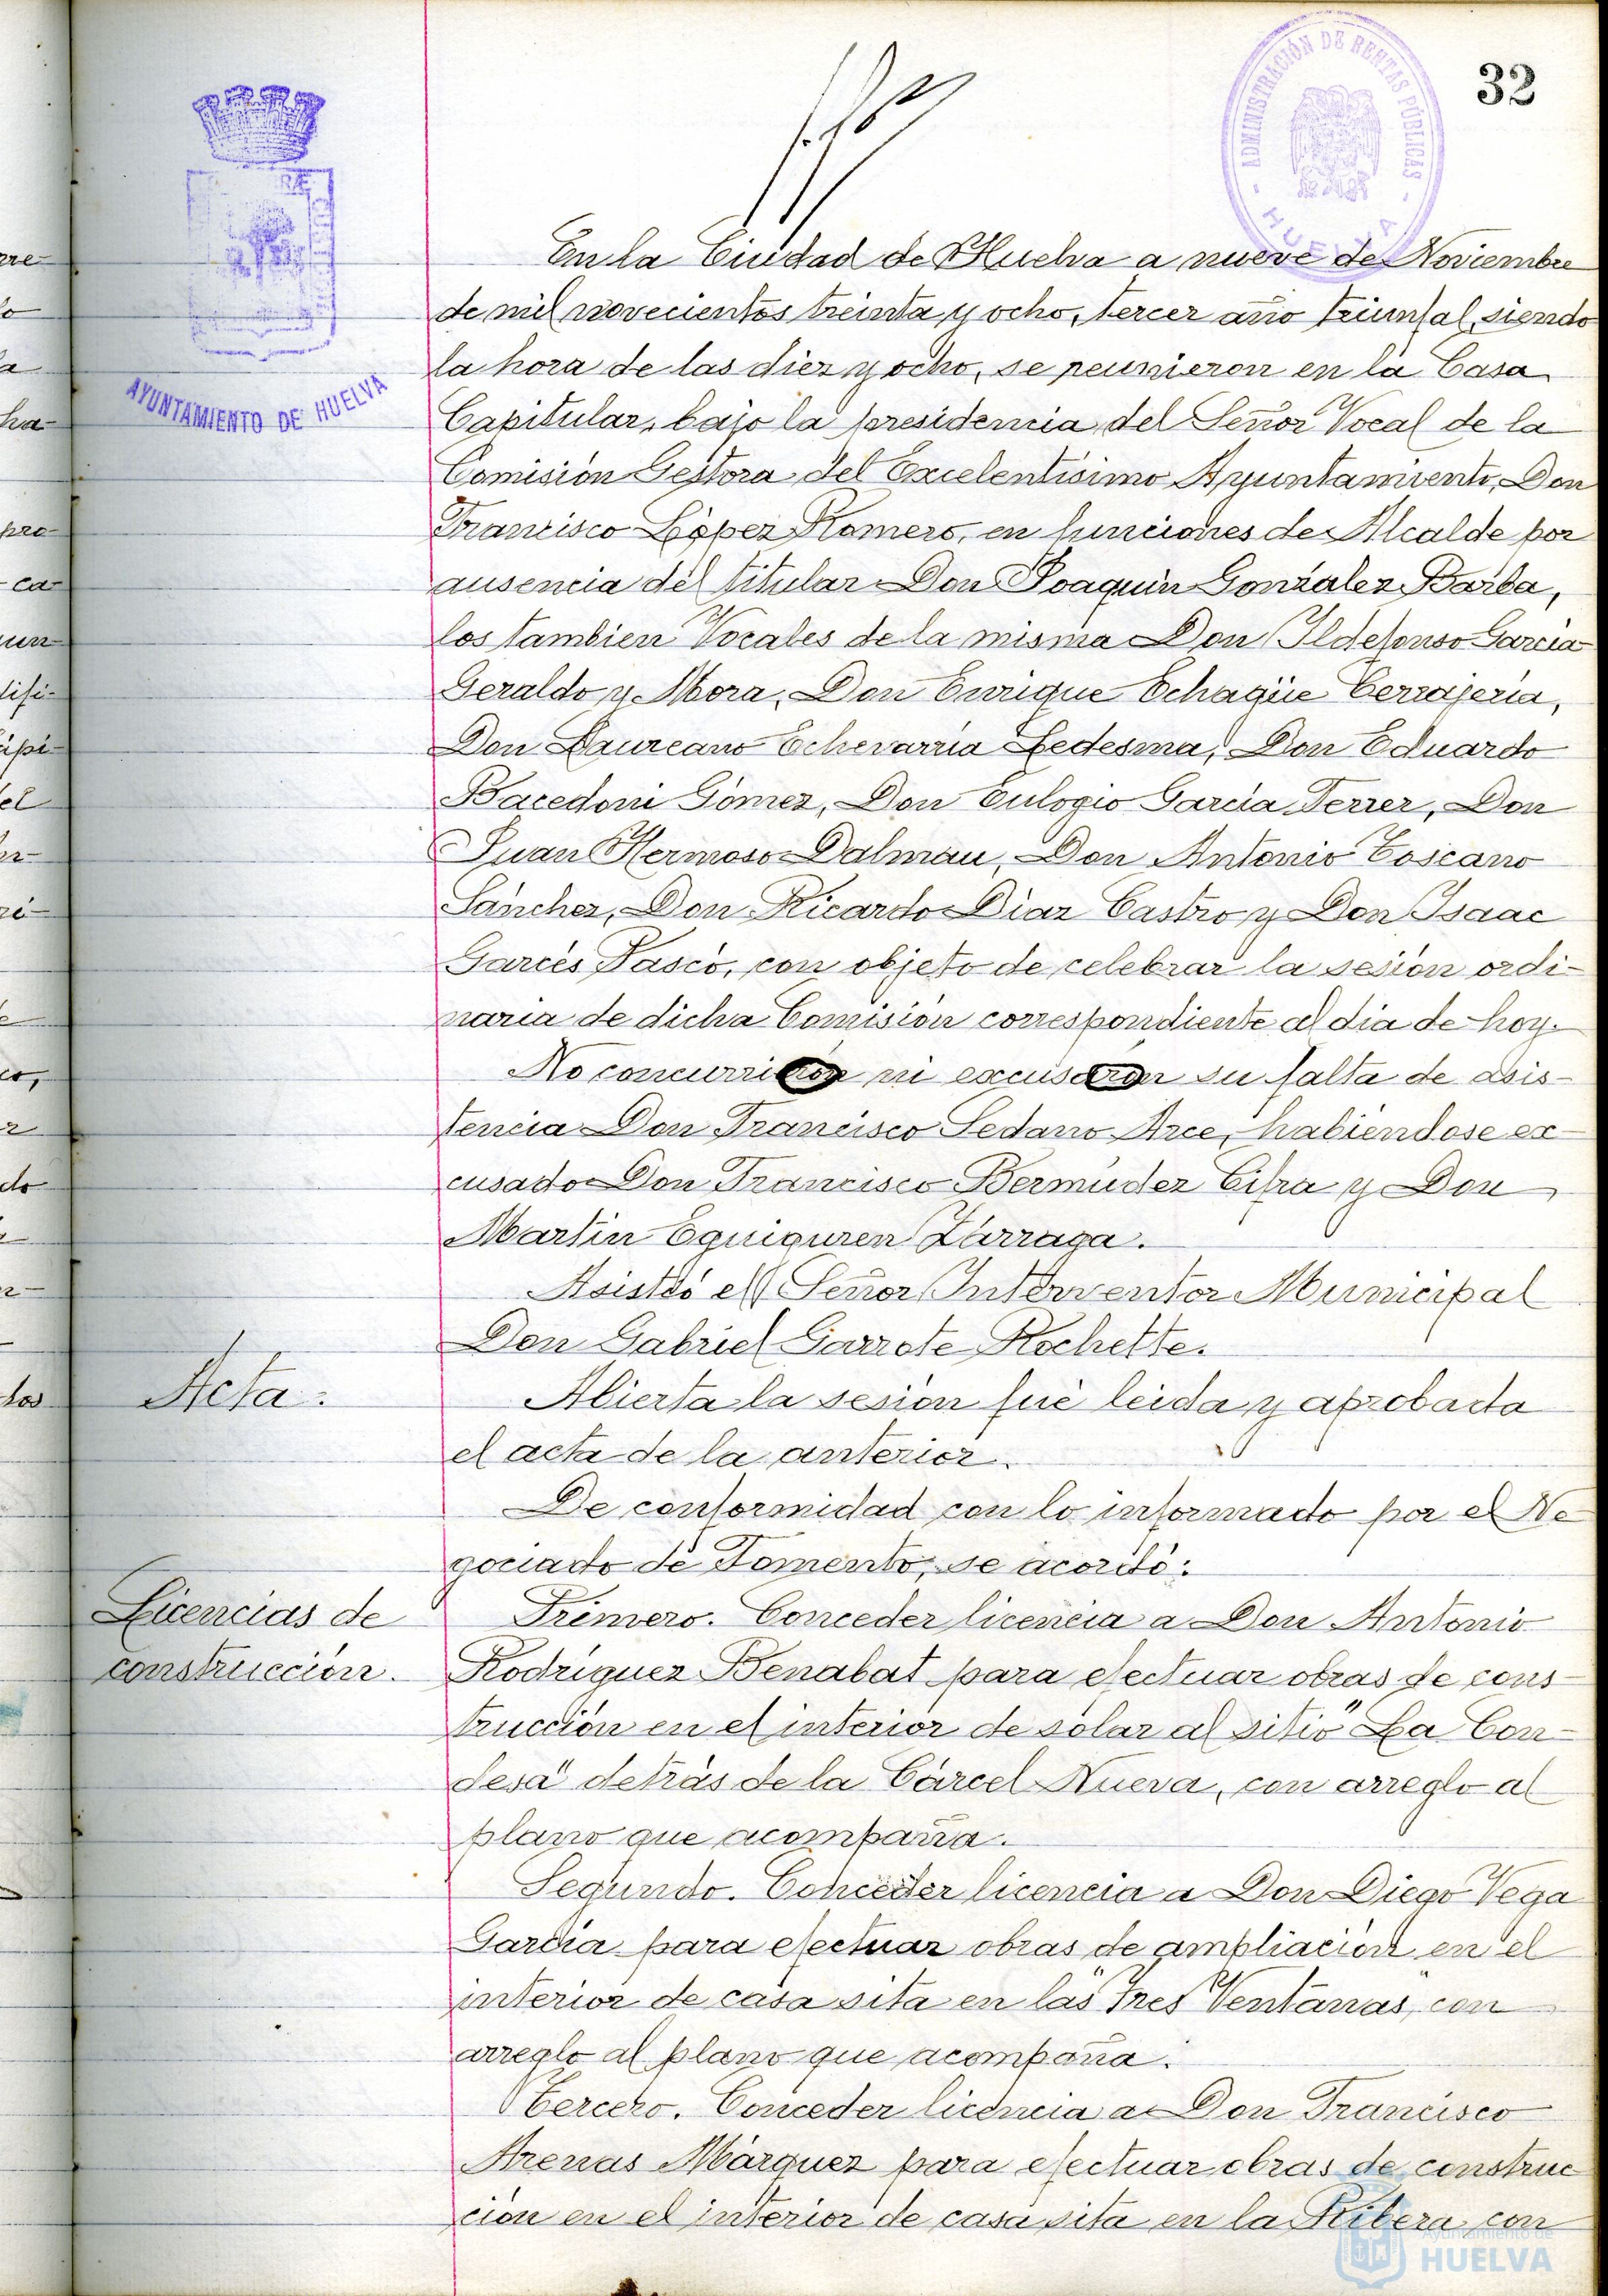 32
ADMINISTRACIÓN DE RENTAS PÚBLICAS
HUELVA
AYUNTAMIENTO DE HUELVA
En la Ciudad de Huelva a nueve de Noviembre
de mil novecientos treinta y ocho, tercer año triunfal, siendo
la hora de las diez y ocho, se reunieron en la Casa
Capitular, bajo la presidencia del Señor Vocal de la
Comisión Gestora del Excelentísimo Ayuntamiento, Don
Francisco López Romero, en funciones de Alcalde por
ausencia del titular Don Joaquín González Barba,
los tambien Vocales de la misma Don Ildefonso García
Geraldo y Mora, Don Enrique Echagüe Cerrajería,
Don Laureano Echevarría Ledesma, Don Eduardo
Bacedoni Gómez, Don Eulogio García Ferrer, Don
Juan Hermoso Dalmau, Don Antonio Toscano
Sánchez, Don Ricardo Díaz Castro y Don Isaac
Garcés Pascó, con objeto de celebrar la sesión ordi-
naria de dicha Comisión correspondiente al día de hoy.
No concurrieron ni excusaron su falta de asis-
tencia Don Francisco Sedano Arce, habiendose ex-
cusado Don Francisco Bermúdez Cifra y Don
Martín Eguiguren Zárraga.
Asistió el Señor Interventor Municipal
Don Gabriel Garrote Rochette.
Acta.
Abierta la sesión fué leida y aprobada
el acta de la anterior.
De conformidad con lo informado por el Ne
gociado de Fomento, se acordó:
Licencias de
construcción.
Primero. Conceder licencia a Don Antonio
Rodríguez Benabat para efectuar obras de cons-
trucción en el interior de solar al sitio "La Con-
desa" detrás de la Cárcel Nueva, con arreglo al
plano que acompaña.
Segundo. Conceder licencia a Don Diego Vega
García para efectuar obras de ampliación en el
interior de casa sita en las "Tres Ventanas", con
arreglo al plano que acompaña.
Tercero. Conceder licencia a Don Francisco
Arenas Márquez para efectuar obras de construc
ción en el interior de casa sita en la Ribera con
Ayuntamiento de
HUELVA